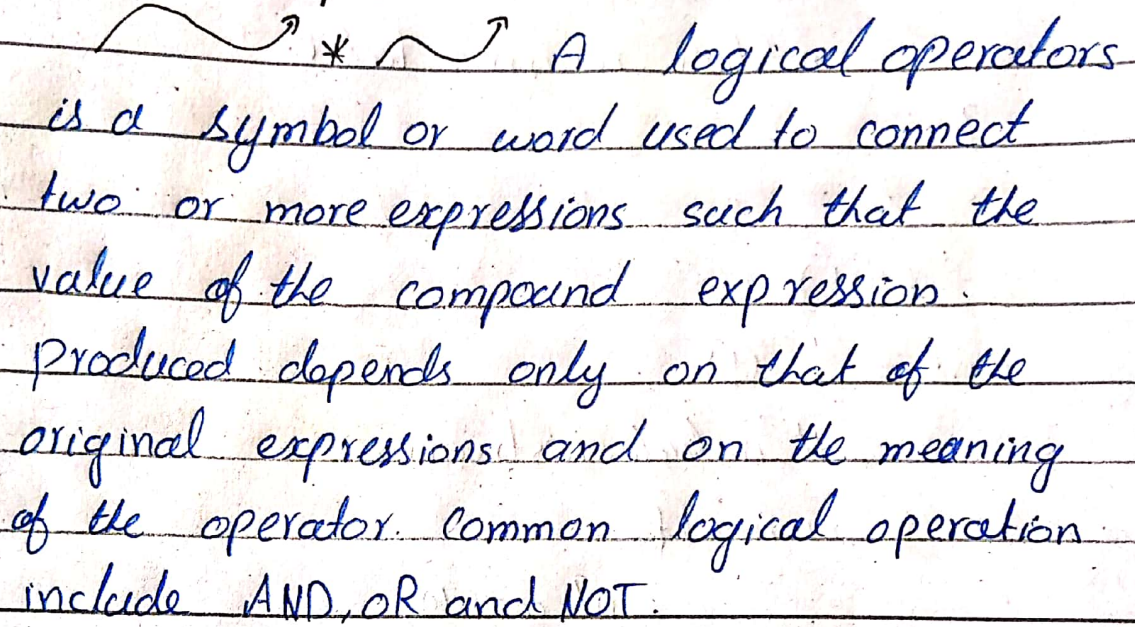 * A logical operators
is a symbol or word used to connect
two or more expressions such that the
value of the compound expression.
produced depends only on that of the
original expressions and on the meaning
of the operator. Common logical operation
include AND, OR and NOT.